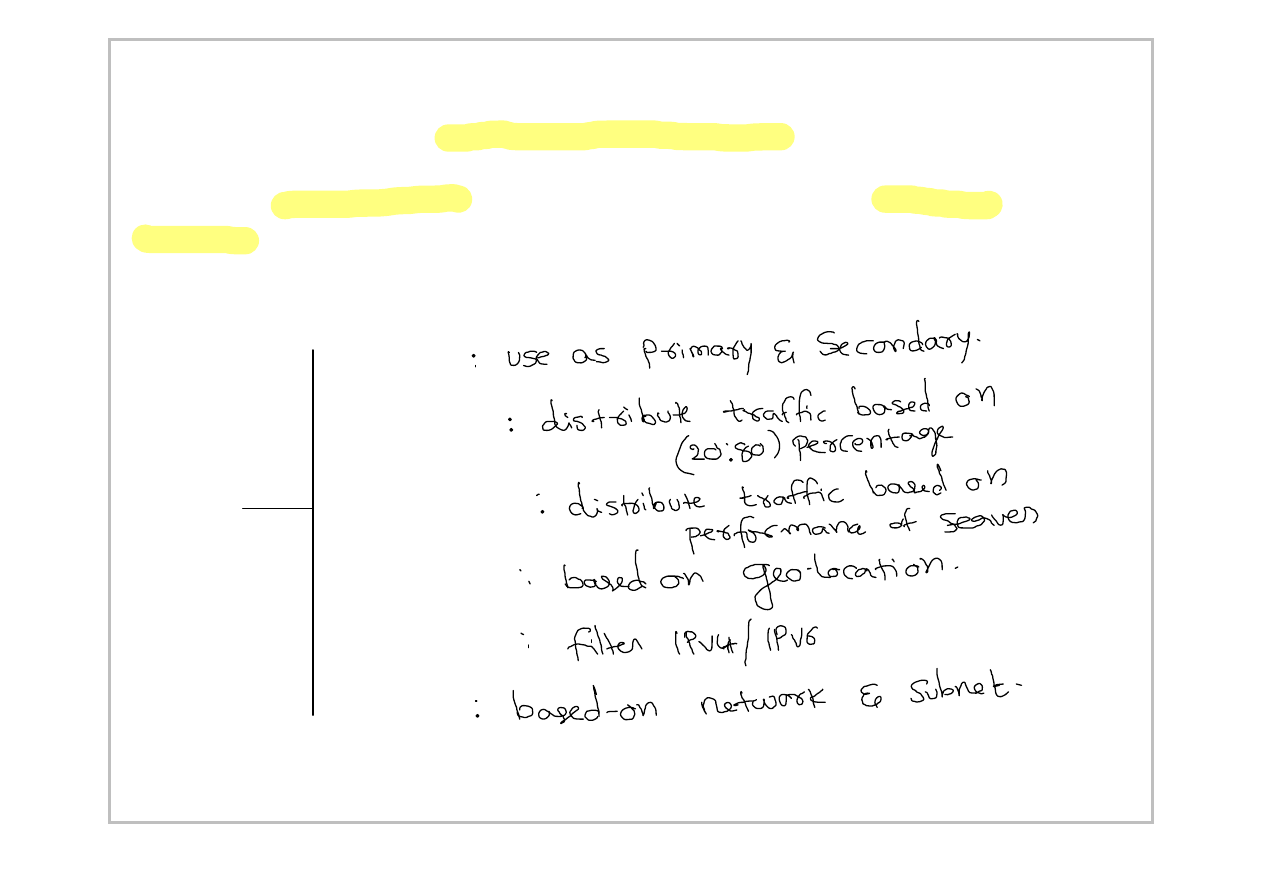 : use as Primary & Secondary.
: distribute traffic based on
(20:80) Percentage
: distribute traffic based on
performance of server
: based on geo-location.
: filter IPv4/IPv6
: based-on network & Subnet.